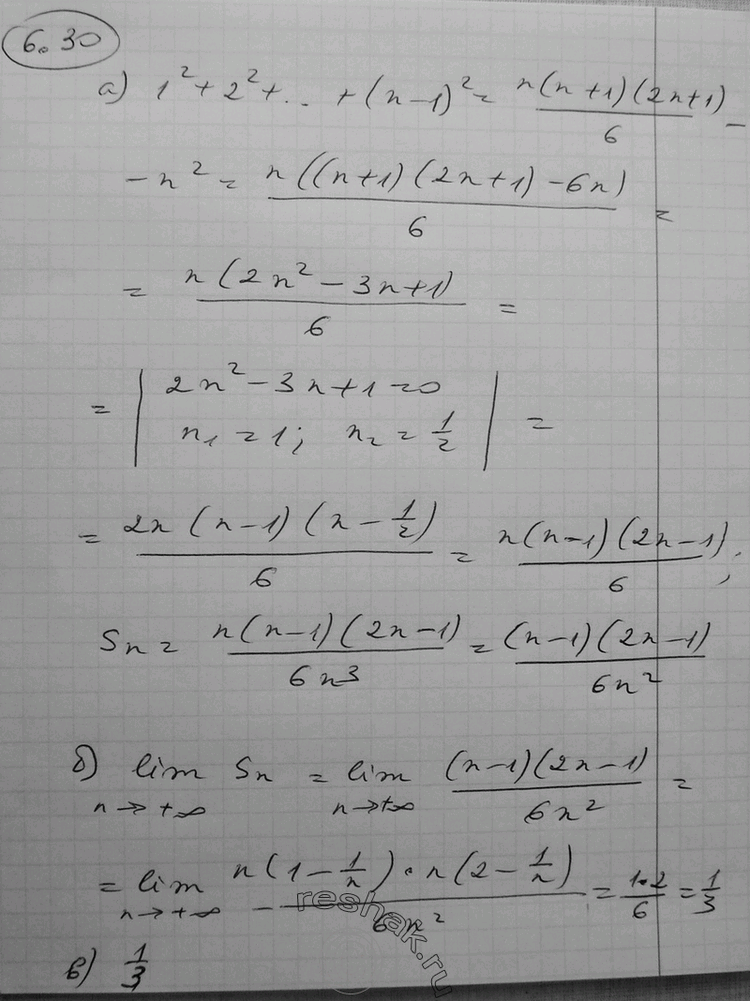 6.30
а) 1² + 2² + .. + (n-1)² = n(n+1)(2n+1)/6 -
- n² = n((n+1)(2n+1) - 6n)/6 =
= n(2n² - 3n+1)/6 =
= | 2n² - 3n + 1 = 0
n₁ = 1; n₂ = 1/2 | =
= 2n(n-1)(n - 1/2)/6 = n(n-1)(2n-1)/6;
Sn = n(n-1)(2n-1)/6n³ = (n-1)(2n-1)/6n²
б) lim Sn = lim (n-1)(2n-1)/6n² =
n→+∞ n→+∞
= lim n(1 - 1/n)·n(2 - 1/n)/6n² = 1·2/6 = 1/3
n→+∞
в) 1/3
reshak.ru